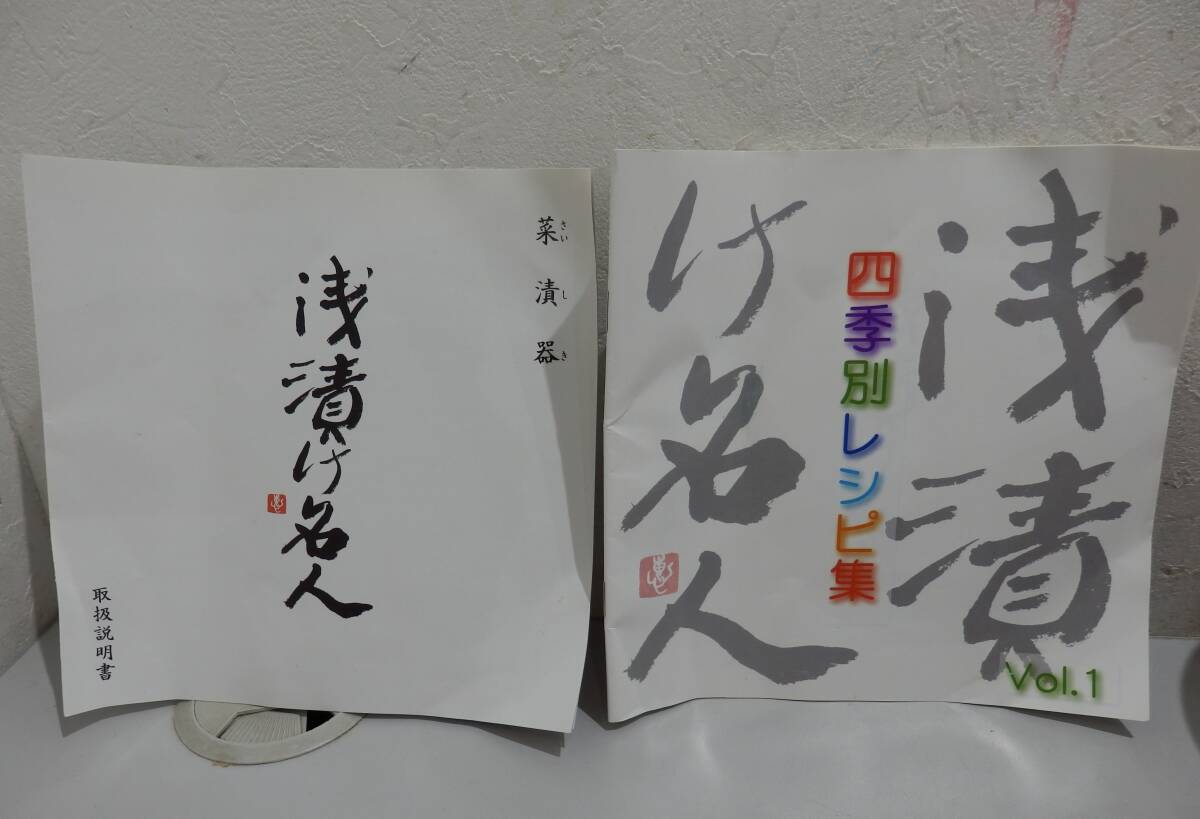 菜漬器
さいしき
浅漬け名人
取扱説明書
浅漬
け名人
四季別レシピ集
Vol.1